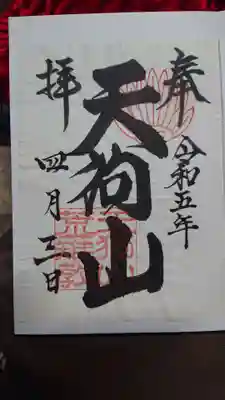 奉
令和五年
天狗山
拝
四月三日